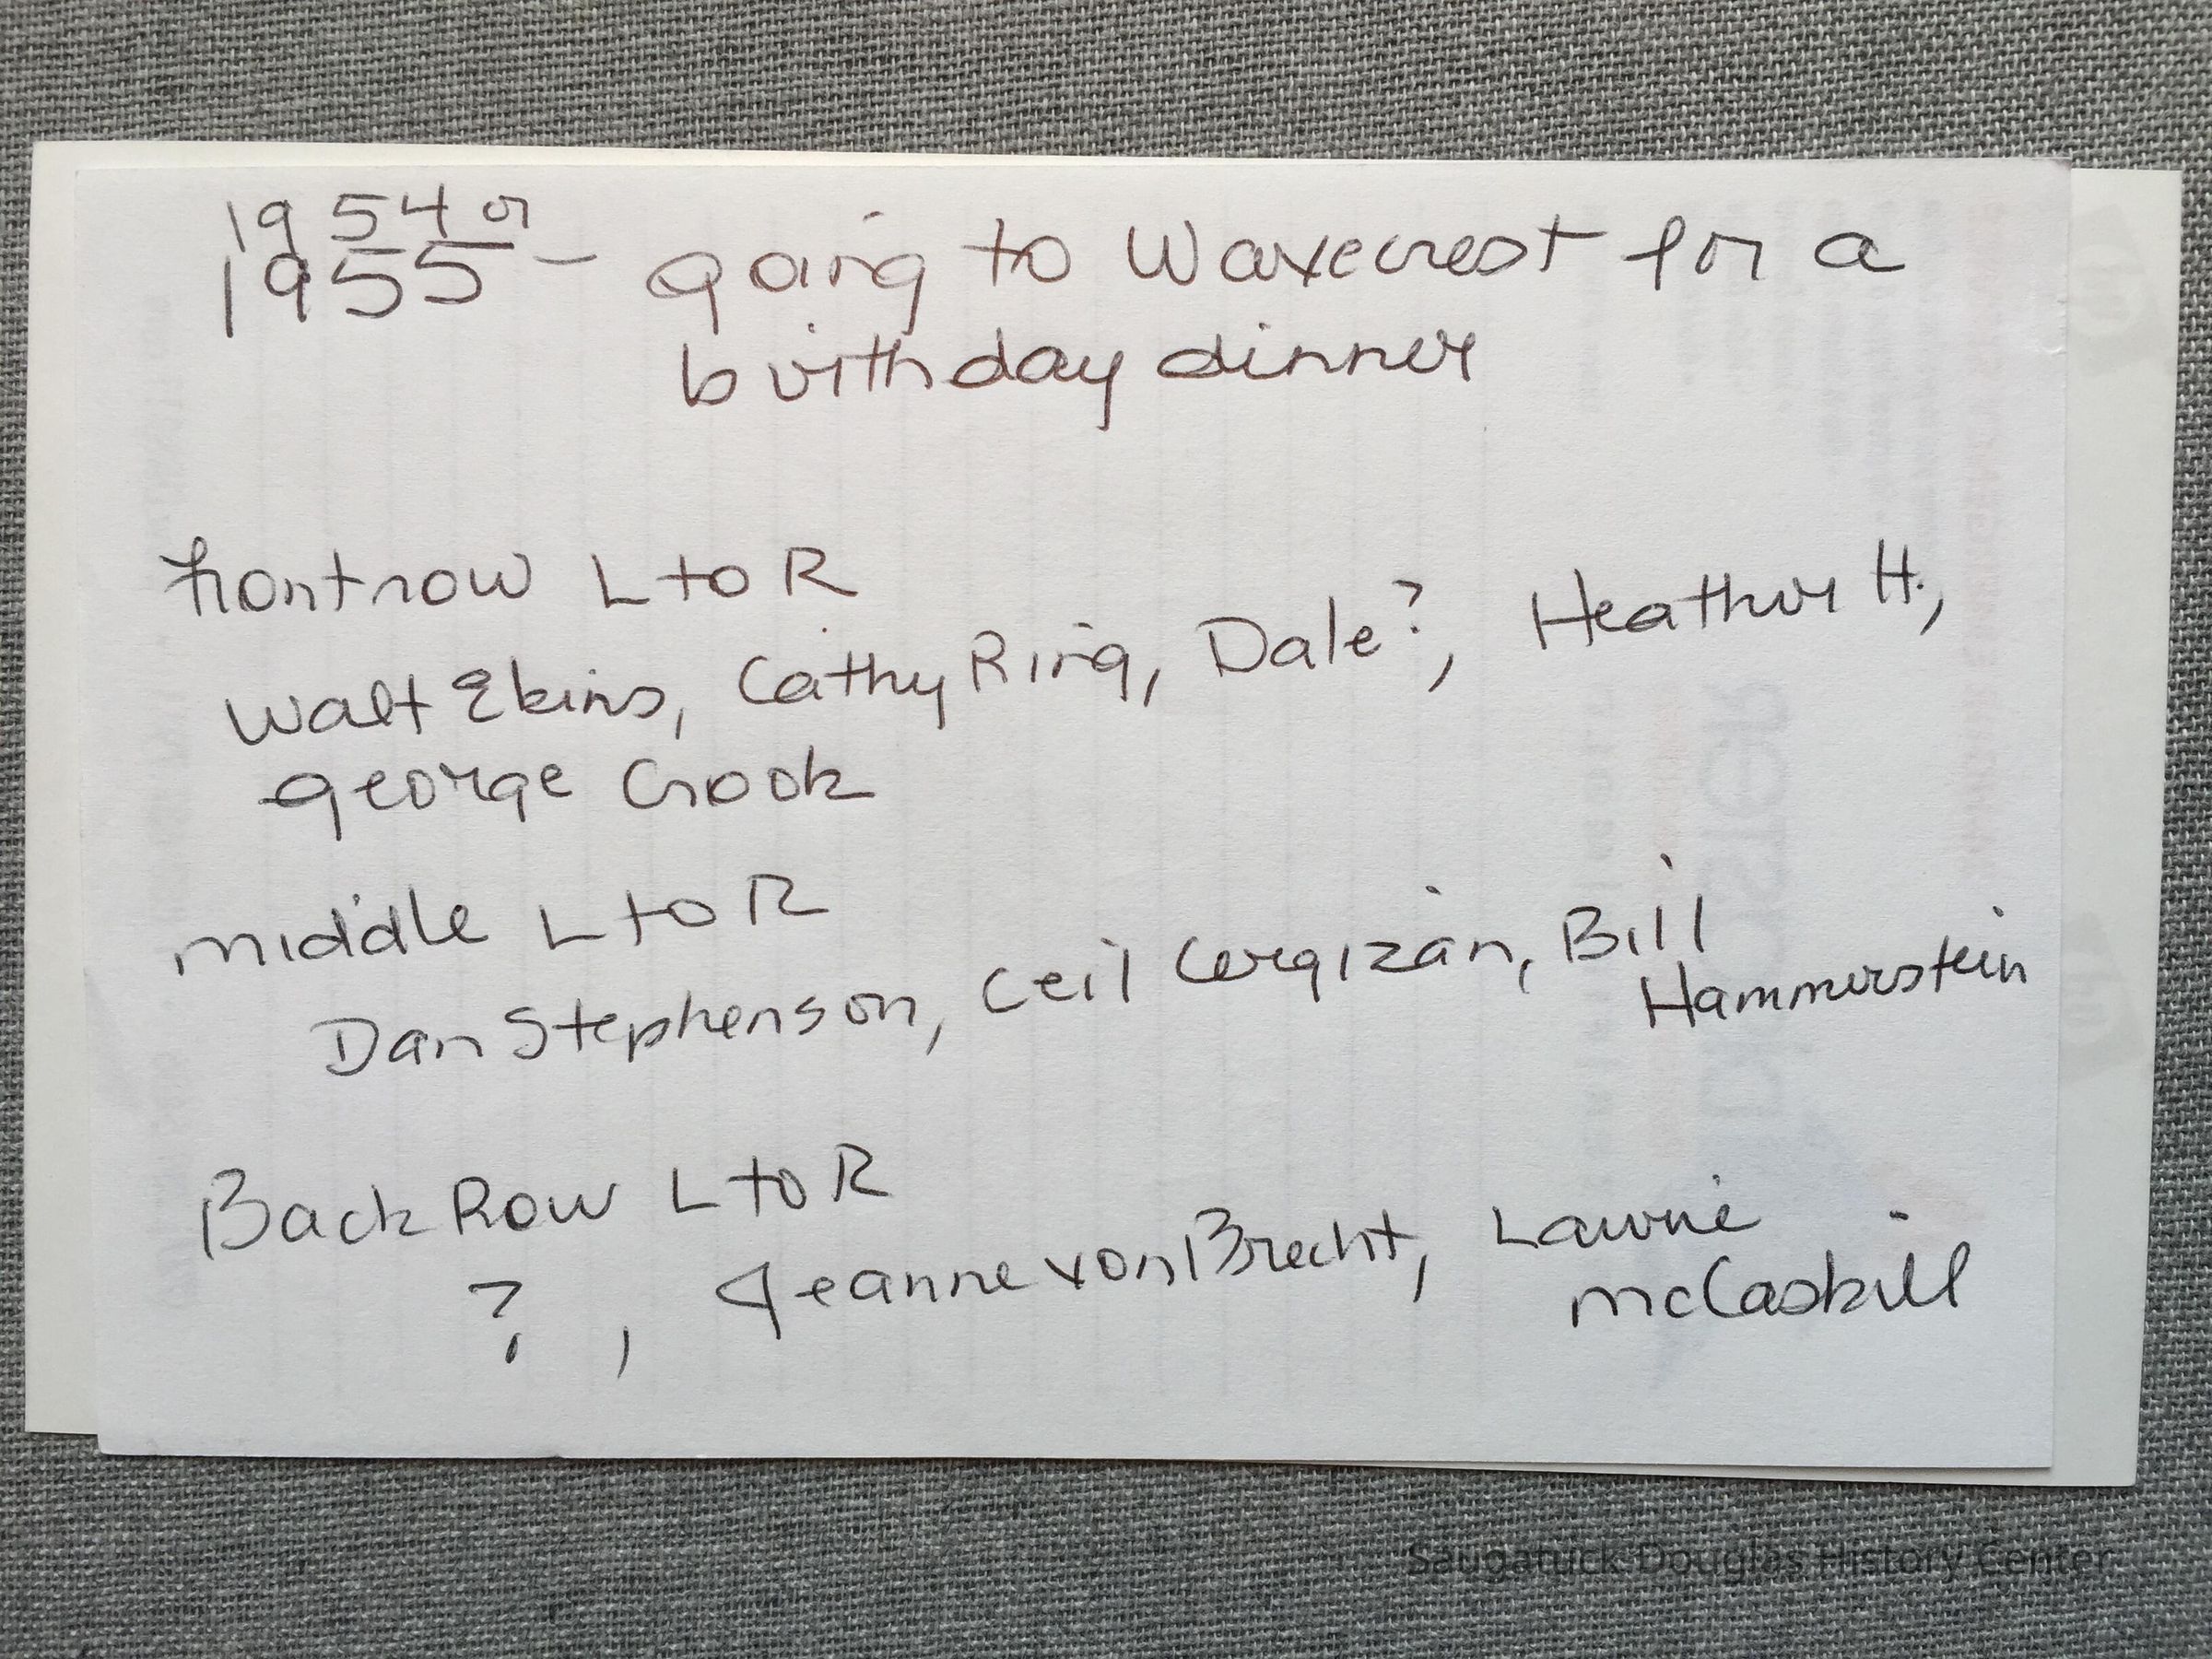 1954 or
1955 - going to Wavecrest for a
birthday dinner
front row L to R
Walt Ekins, Cathy Ring, Dale?, Heather H.,
George Crook
middle L to R
Dan Stephenson, Ceil Cergizan, Bill
Hammerstein
Back Row L to R
?, Jeanne von Brecht, Lawrie
McCaskill
Saugatuck-Douglas History Center